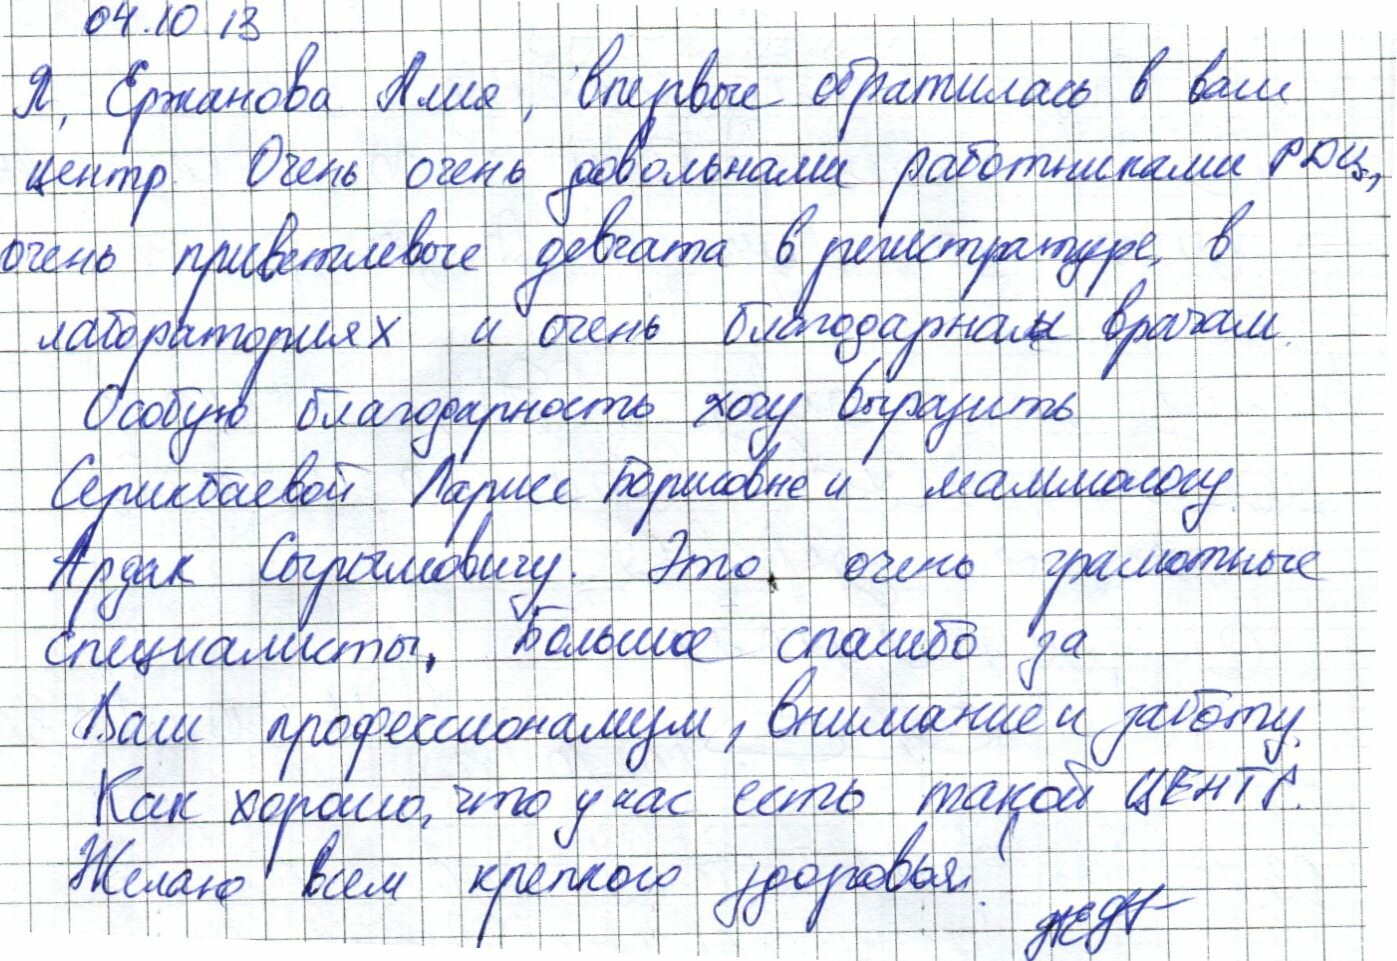 04.10.13
Я, Ержанова Алия, впервые обратилась в ваш
центр. Очень очень довольнами работниками РДЦ,
очень приветлевые девчата в регистратуре, в
лабораториях и очень благодарны врачам.
Особую благодарность хочу выразить
Серикбаевой Ларисе Борисовне и маммологу
Ардак Сырымовичу. Это очень грамотные
специалисты. Большое спасибо за
Ваш профессионализм, внимание и заботу.
Как хорошо, что у нас есть такой ЦЕНТР.
Желаю всем крепкого здоровья!